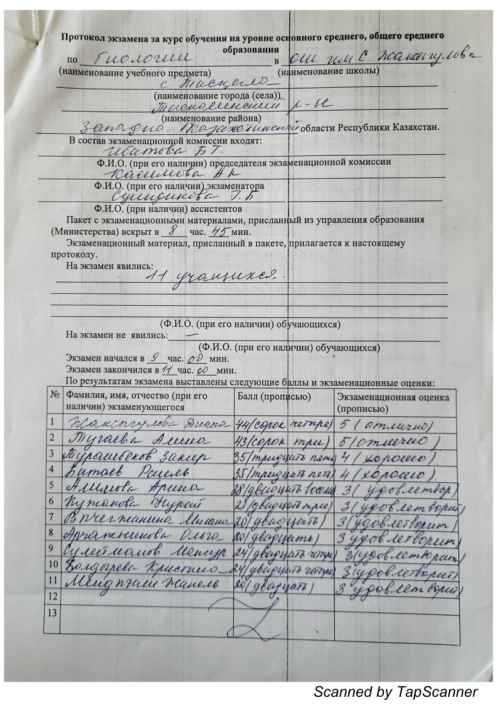 Протокол экзамена за курс обучения на уровне основного среднего, общего среднего
образования
по биологии в ОШ им С Жаксыгулова
(наименование учебного предмета) (наименование школы)
с. Тасқала
(наименование города (села))
Таскалинский р-н
(наименование района)
Западно-Казахстанской области Республики Казахстан.
В состав экзаменационной комиссии входят:
Б.Т.
Ф.И.О. (при его наличии) председателя экзаменационной комиссии
Касимова А К
Ф.И.О. (при его наличии) экзаменатора
Г.Б
Ф.И.О. (при наличии) ассистентов
Пакет с экзаменационными материалами, присланный из управления образования
(Министерства) вскрыт в 8 час. 45 мин.
Экзаменационный материал, присланный в пакете, прилагается к настоящему
протоколу.
На экзамен явились:
11 учащихся.
(Ф.И.О. (при его наличии) обучающихся)
На экзамен не явились: —
(Ф.И.О. (при его наличии) обучающихся)
Экзамен начался в 9 час. 00 мин.
Экзамен закончился в 11 час. 00 мин.
По результатам экзамена выставлены следующие баллы и экзаменационные оценки:
№ Фамилия, имя, отчество (при его наличии) экзаменующегося Балл (прописью) Экзаменационная оценка (прописью)
1 Диана 44 (сорок четыре) 5 (отлично)
2 Тугаева Амина 43 (сорок три) 5 (отлично)
3 Турашбеков Занжер 35 (тридцать пять) 4 (хорошо)
4 Батаев Рамель 35 (тридцать пять) 4 (хорошо)
5 Алимова Арина 28 (двадцать восемь 3 (удовлетвор)
6 Кужанова Нурай 23 (двадцать три) 3 (удовлетворит)
7 Милана 20 (двадцать) 3 (удовлетворит)
8 Арчатникова Ольга 20 (двадцать) 3 (удовлетворит)
9 Сулейманов Мансур 24 (двадцать четыре) 3 (удовлетворит)
10 Кристина 24 (двадцать четыре) 3 (удовлетворит)
11 Жанель 20 (двадцать) 3 (удовлетворит)
12
13
Scanned by TapScanner